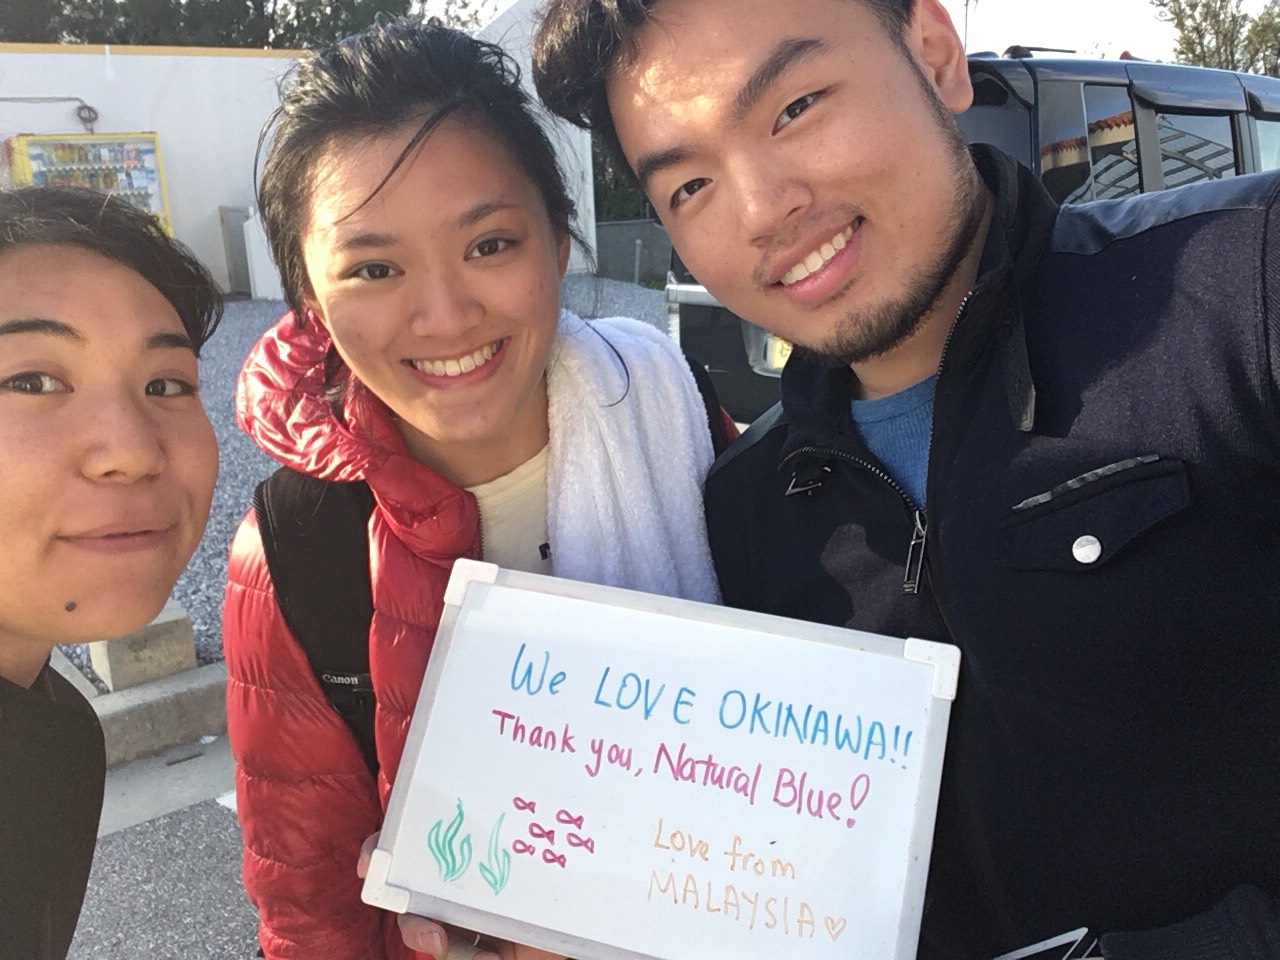 Canon
We LOVE OKINAWA!!
Thank you, Natural Blue!
Love from
MALAYSIA♡